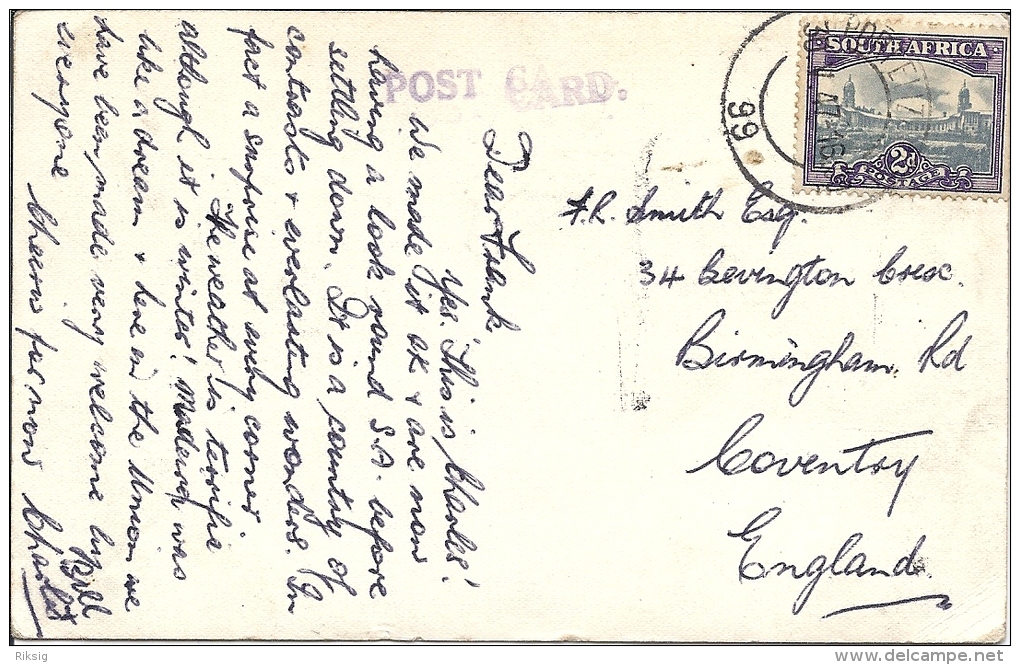 POST CARD.
Dear Frank
Yes! This is Charles!
We made it OK & are now
having a look round S.A. before
settling down. It is a country of
contrasts & everlasting wonders. In
fact a surprise at every corner.
The weather is terrific
although it is winter! Madeira was
like a dream & here in the Union we
have been made very welcome by
everyone
Cheerio for now
Bill
Charles
F.R. Smith Esq.
34 Bevington Cresc.
Birmingham. Rd
Coventry
England
SOUTH AFRICA
2d
POSTAGE
99
Riksig
www.delcampe.net